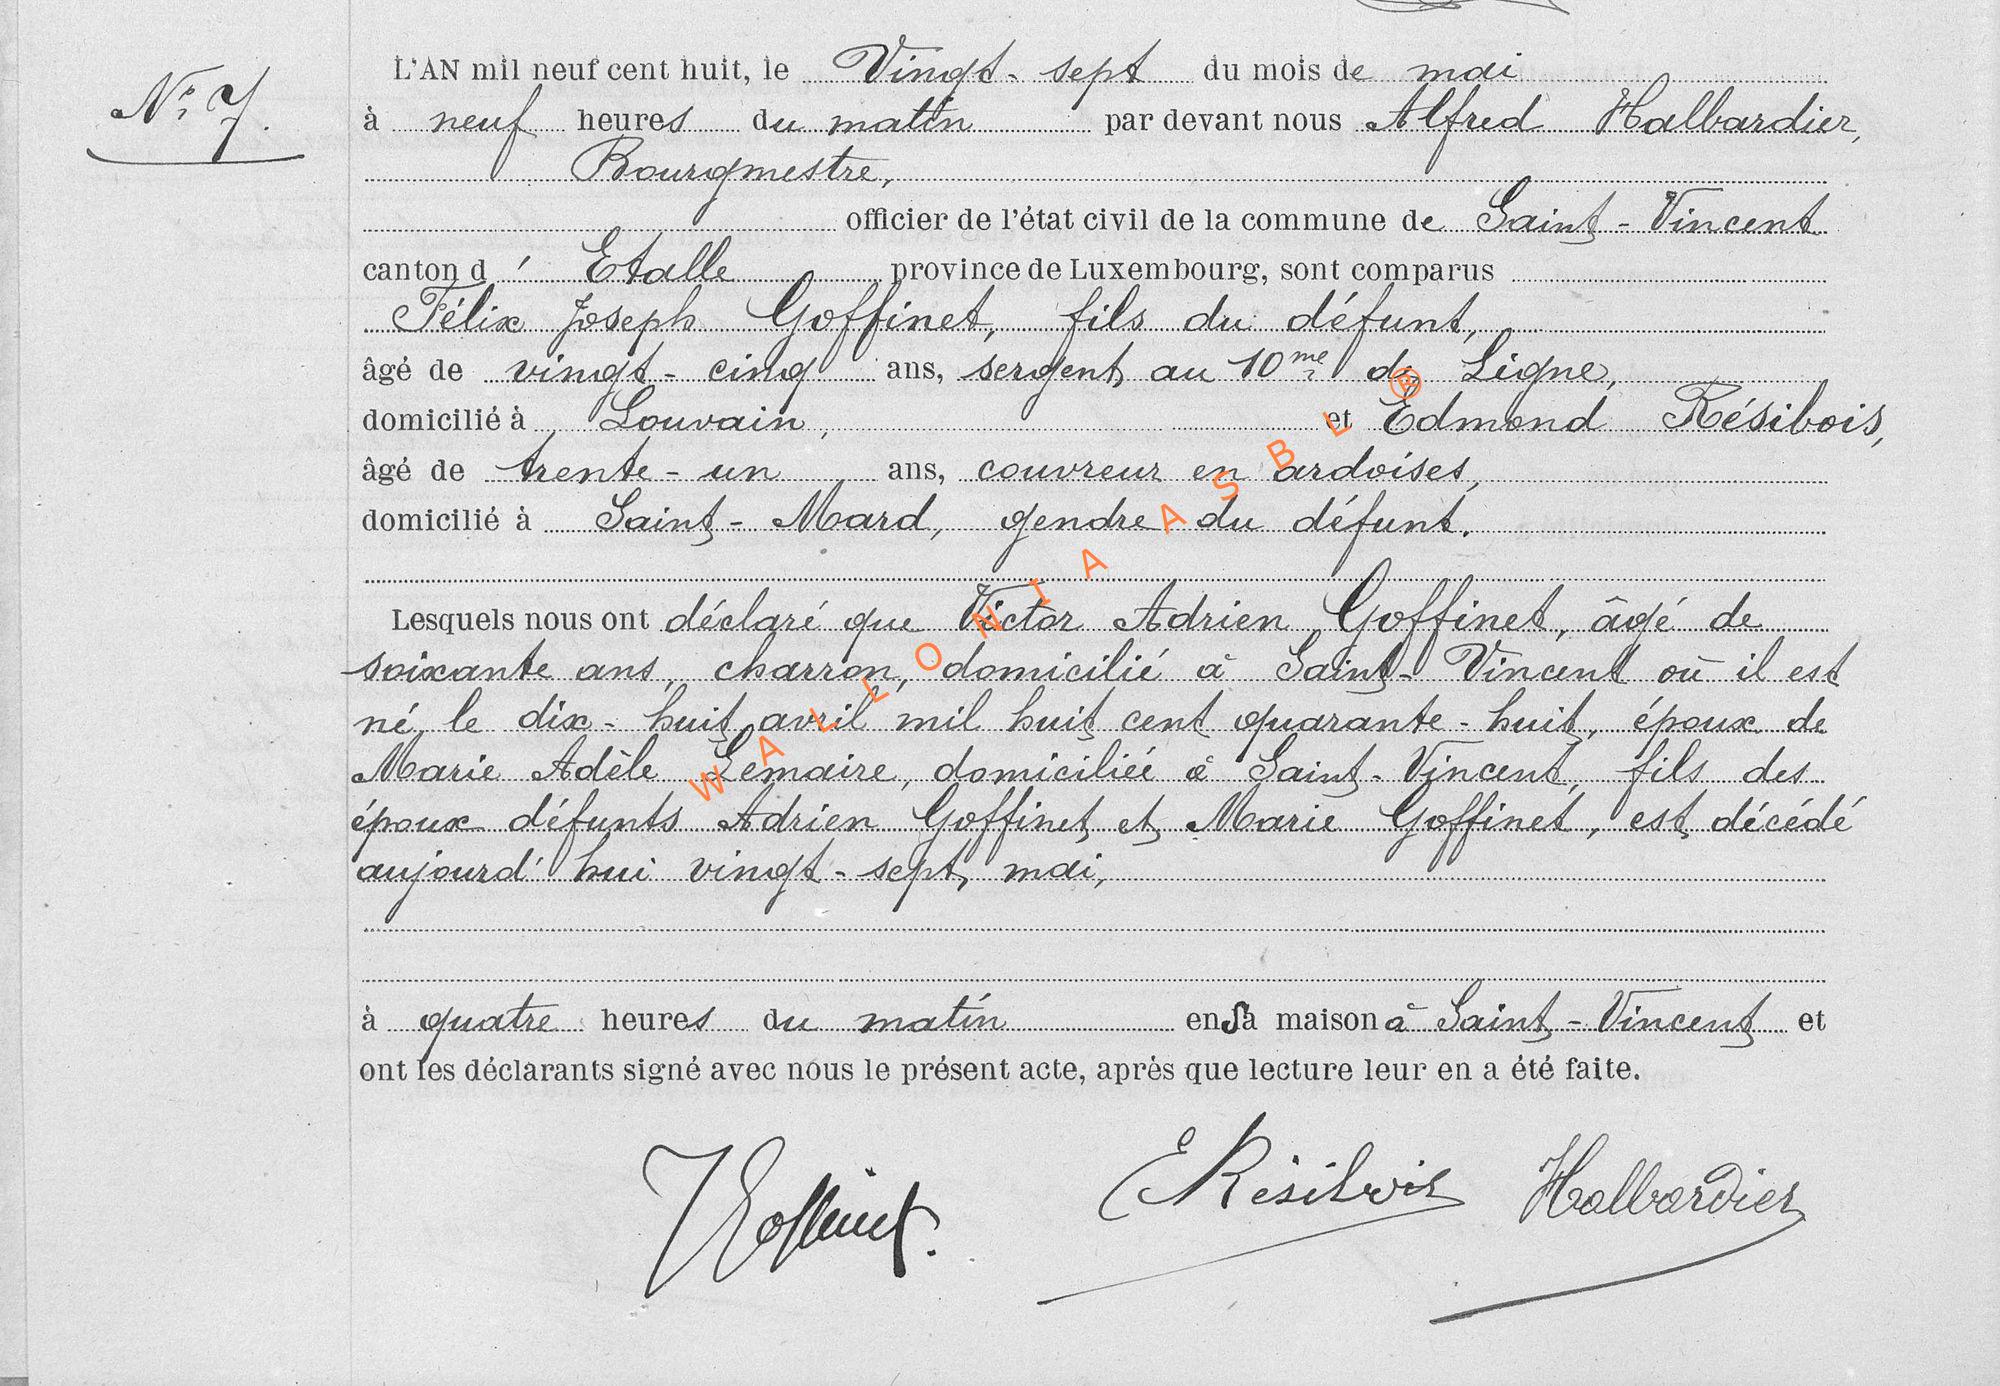 N° 7.
L'AN mil neuf cent huit, le Vingt-sept du mois de mai
à neuf heures du matin par devant nous Alfred Halbardier,
Bourgmestre,
officier de l'état civil de la commune de Saint-Vincent
canton d' Etalle province de Luxembourg, sont comparus
Félix Joseph Goffinet, fils du défunt,
âgé de vingt-cinq ans, sergent au 10me de Ligne,
domicilié à Louvain, et Edmond Résibois,
âgé de trente-un ans, couvreur en ardoises,
domicilié à Saint-Mard, gendre du défunt.
Lesquels nous ont déclaré que Victor Adrien Goffinet, âgé de
soixante ans, charron, domicilié à Saint-Vincent où il est
né le dix-huit avril mil huit cent quarante-huit, époux de
Marie Adèle Lemaire, domiciliée à Saint-Vincent, fils des
époux défunts Adrien Goffinet et Marie Goffinet, est décédé
aujourd'hui vingt-sept mai,
à quatre heures du matin en sa maison à Saint-Vincent et
ont les déclarants signé avec nous le présent acte, après que lecture leur en a été faite.
Goffinet. E Résibois Halbardier
WALLONIA ASBL ®